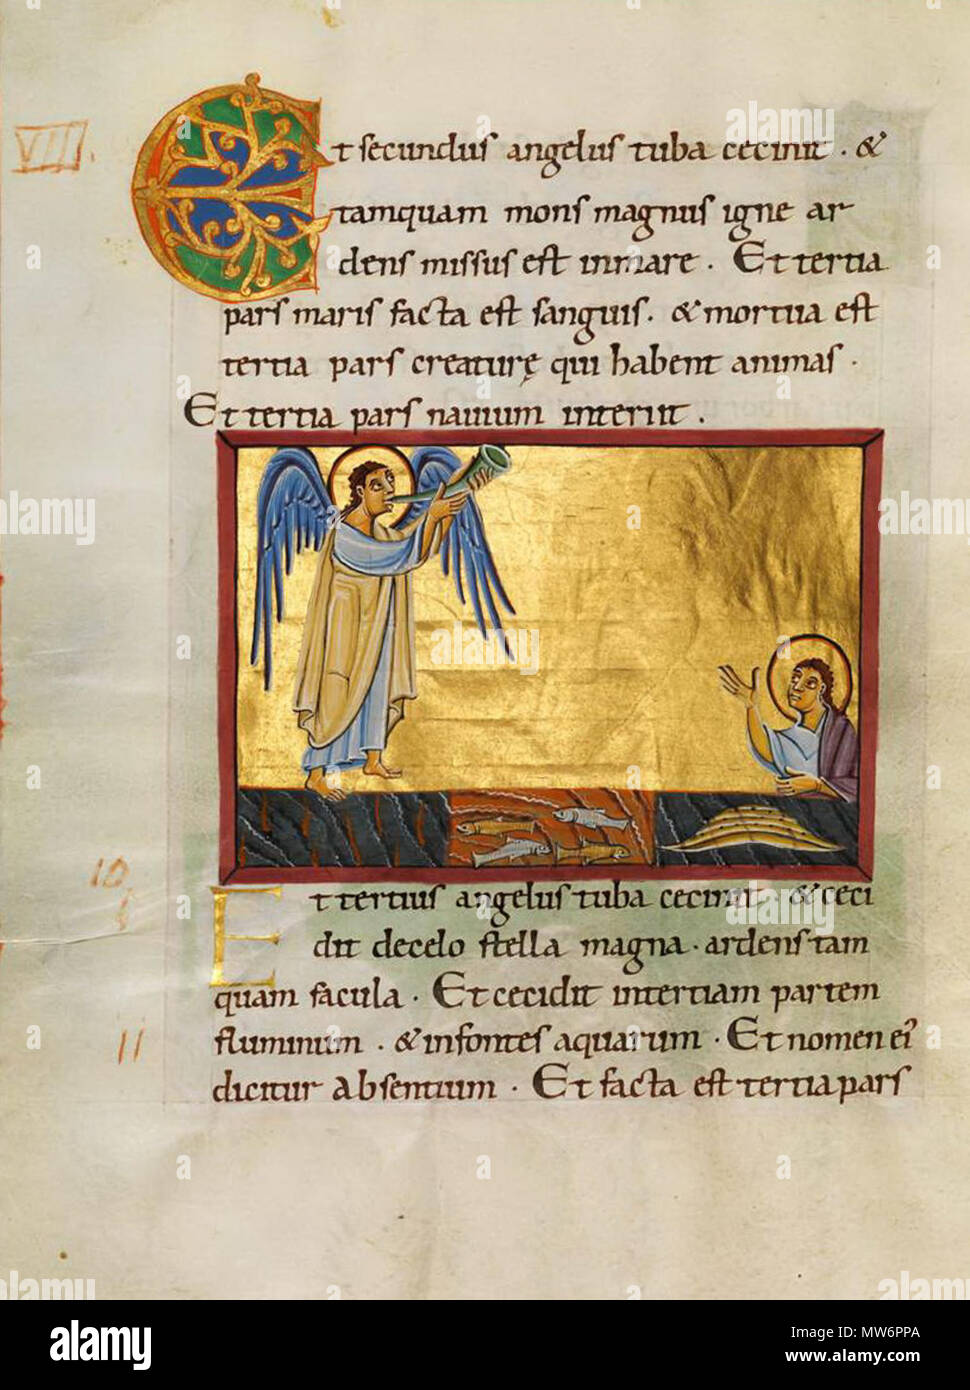 VIII.
Et secunduſ angeluſ tuba cecinit · &
tamquam monſ magnuſ igne ar
denſ miſſuſ eſt inmare · Et tertia
parſ mariſ facta eſt ſanguiſ. & mortua eſt
tertia parſ creaturę qui habent animaſ ·
Et tertia parſ nauium interiit .
10
Et tertiuſ angeluſ tuba cecinit · & ceci
dit decelo ſtella magna · ardenſ tam
quam facula · Et cecidit intertiam partem
11
fluminum · & infonteſ aquarum · Et nomen ei'
dicitur abſentium · Et facta eſt tertia parſ
alamy
Image ID: MW6PPA
www.alamy.com